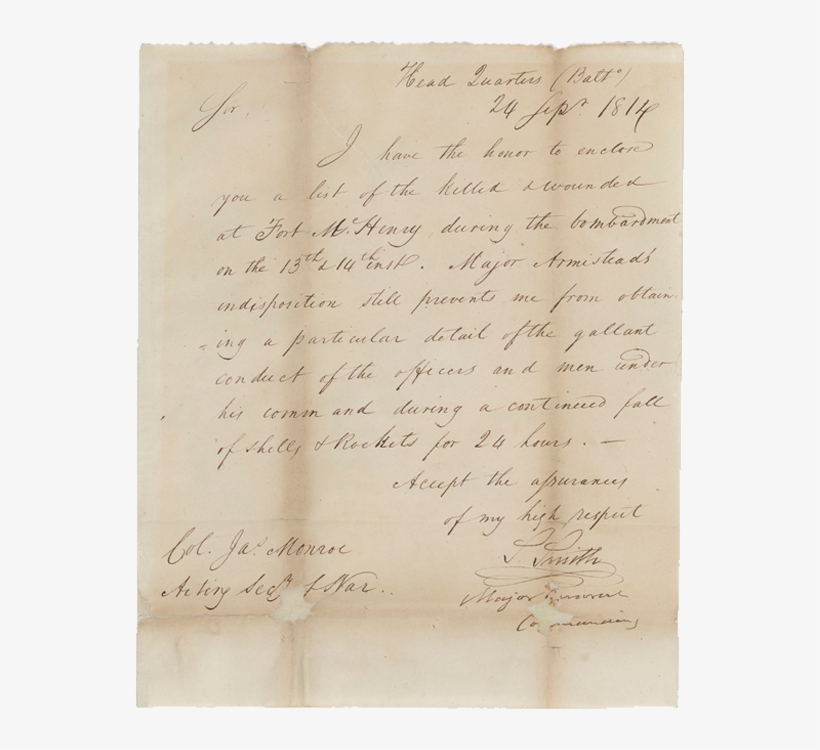 Head Quarters (Balto)
24 Sepr. 1814
Sir,
I have the honor to enclose
you a list of the killed & wounded
at Fort McHenry, during the bombardment
on the 13th & 14th inst. Major Armistead's
indisposition still prevents me from obtain-
=ing a particular detail of the gallant
conduct of the officers and men under
his command during a continued fall
of shells & Rockets for 24 hours. —
Accept the assurances
of my high respect
S. Smith
Major General
Commanding
Col. Jas. Monroe
Acting Secy of War..